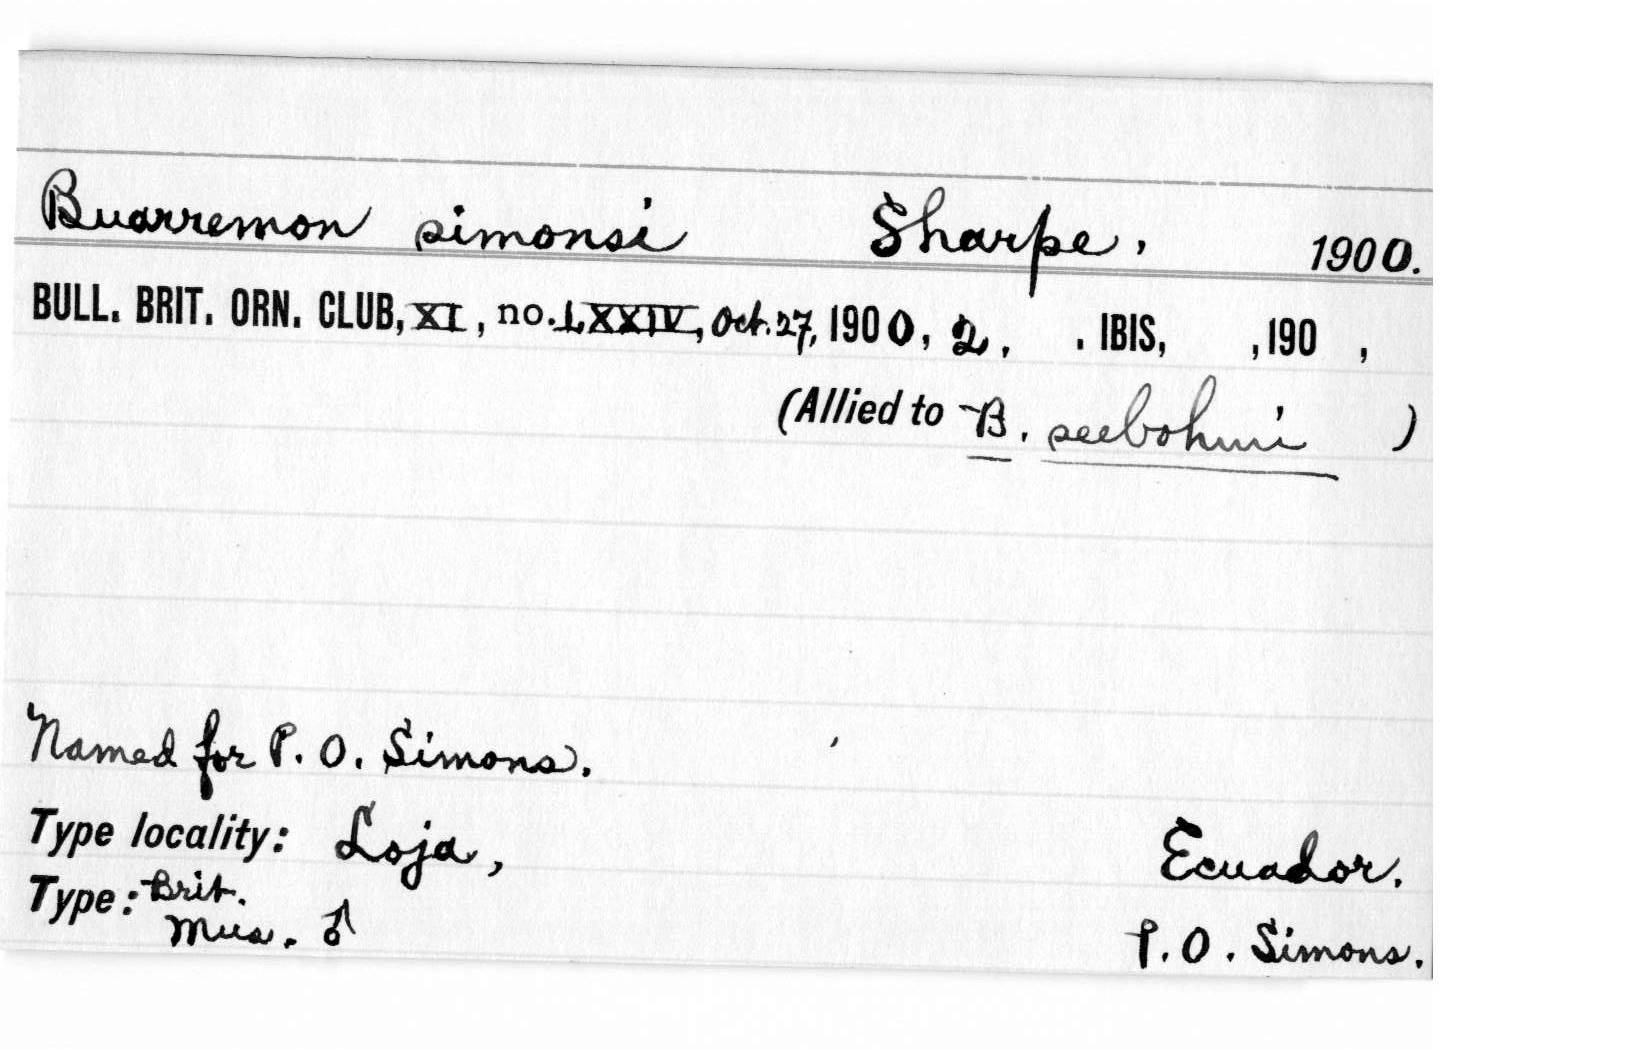 Buarremon simonsi Sharpe, 1900.
BULL. BRIT. ORN. CLUB, XI, no. LXXIV, Oct. 27, 1900, 2, . IBIS, , 190 ,
(Allied to B. seebohmi )
Named for P. O. Simons.
Type locality: Loja, Ecuador.
Type: Brit. Mus. ♂ P. O. Simons.